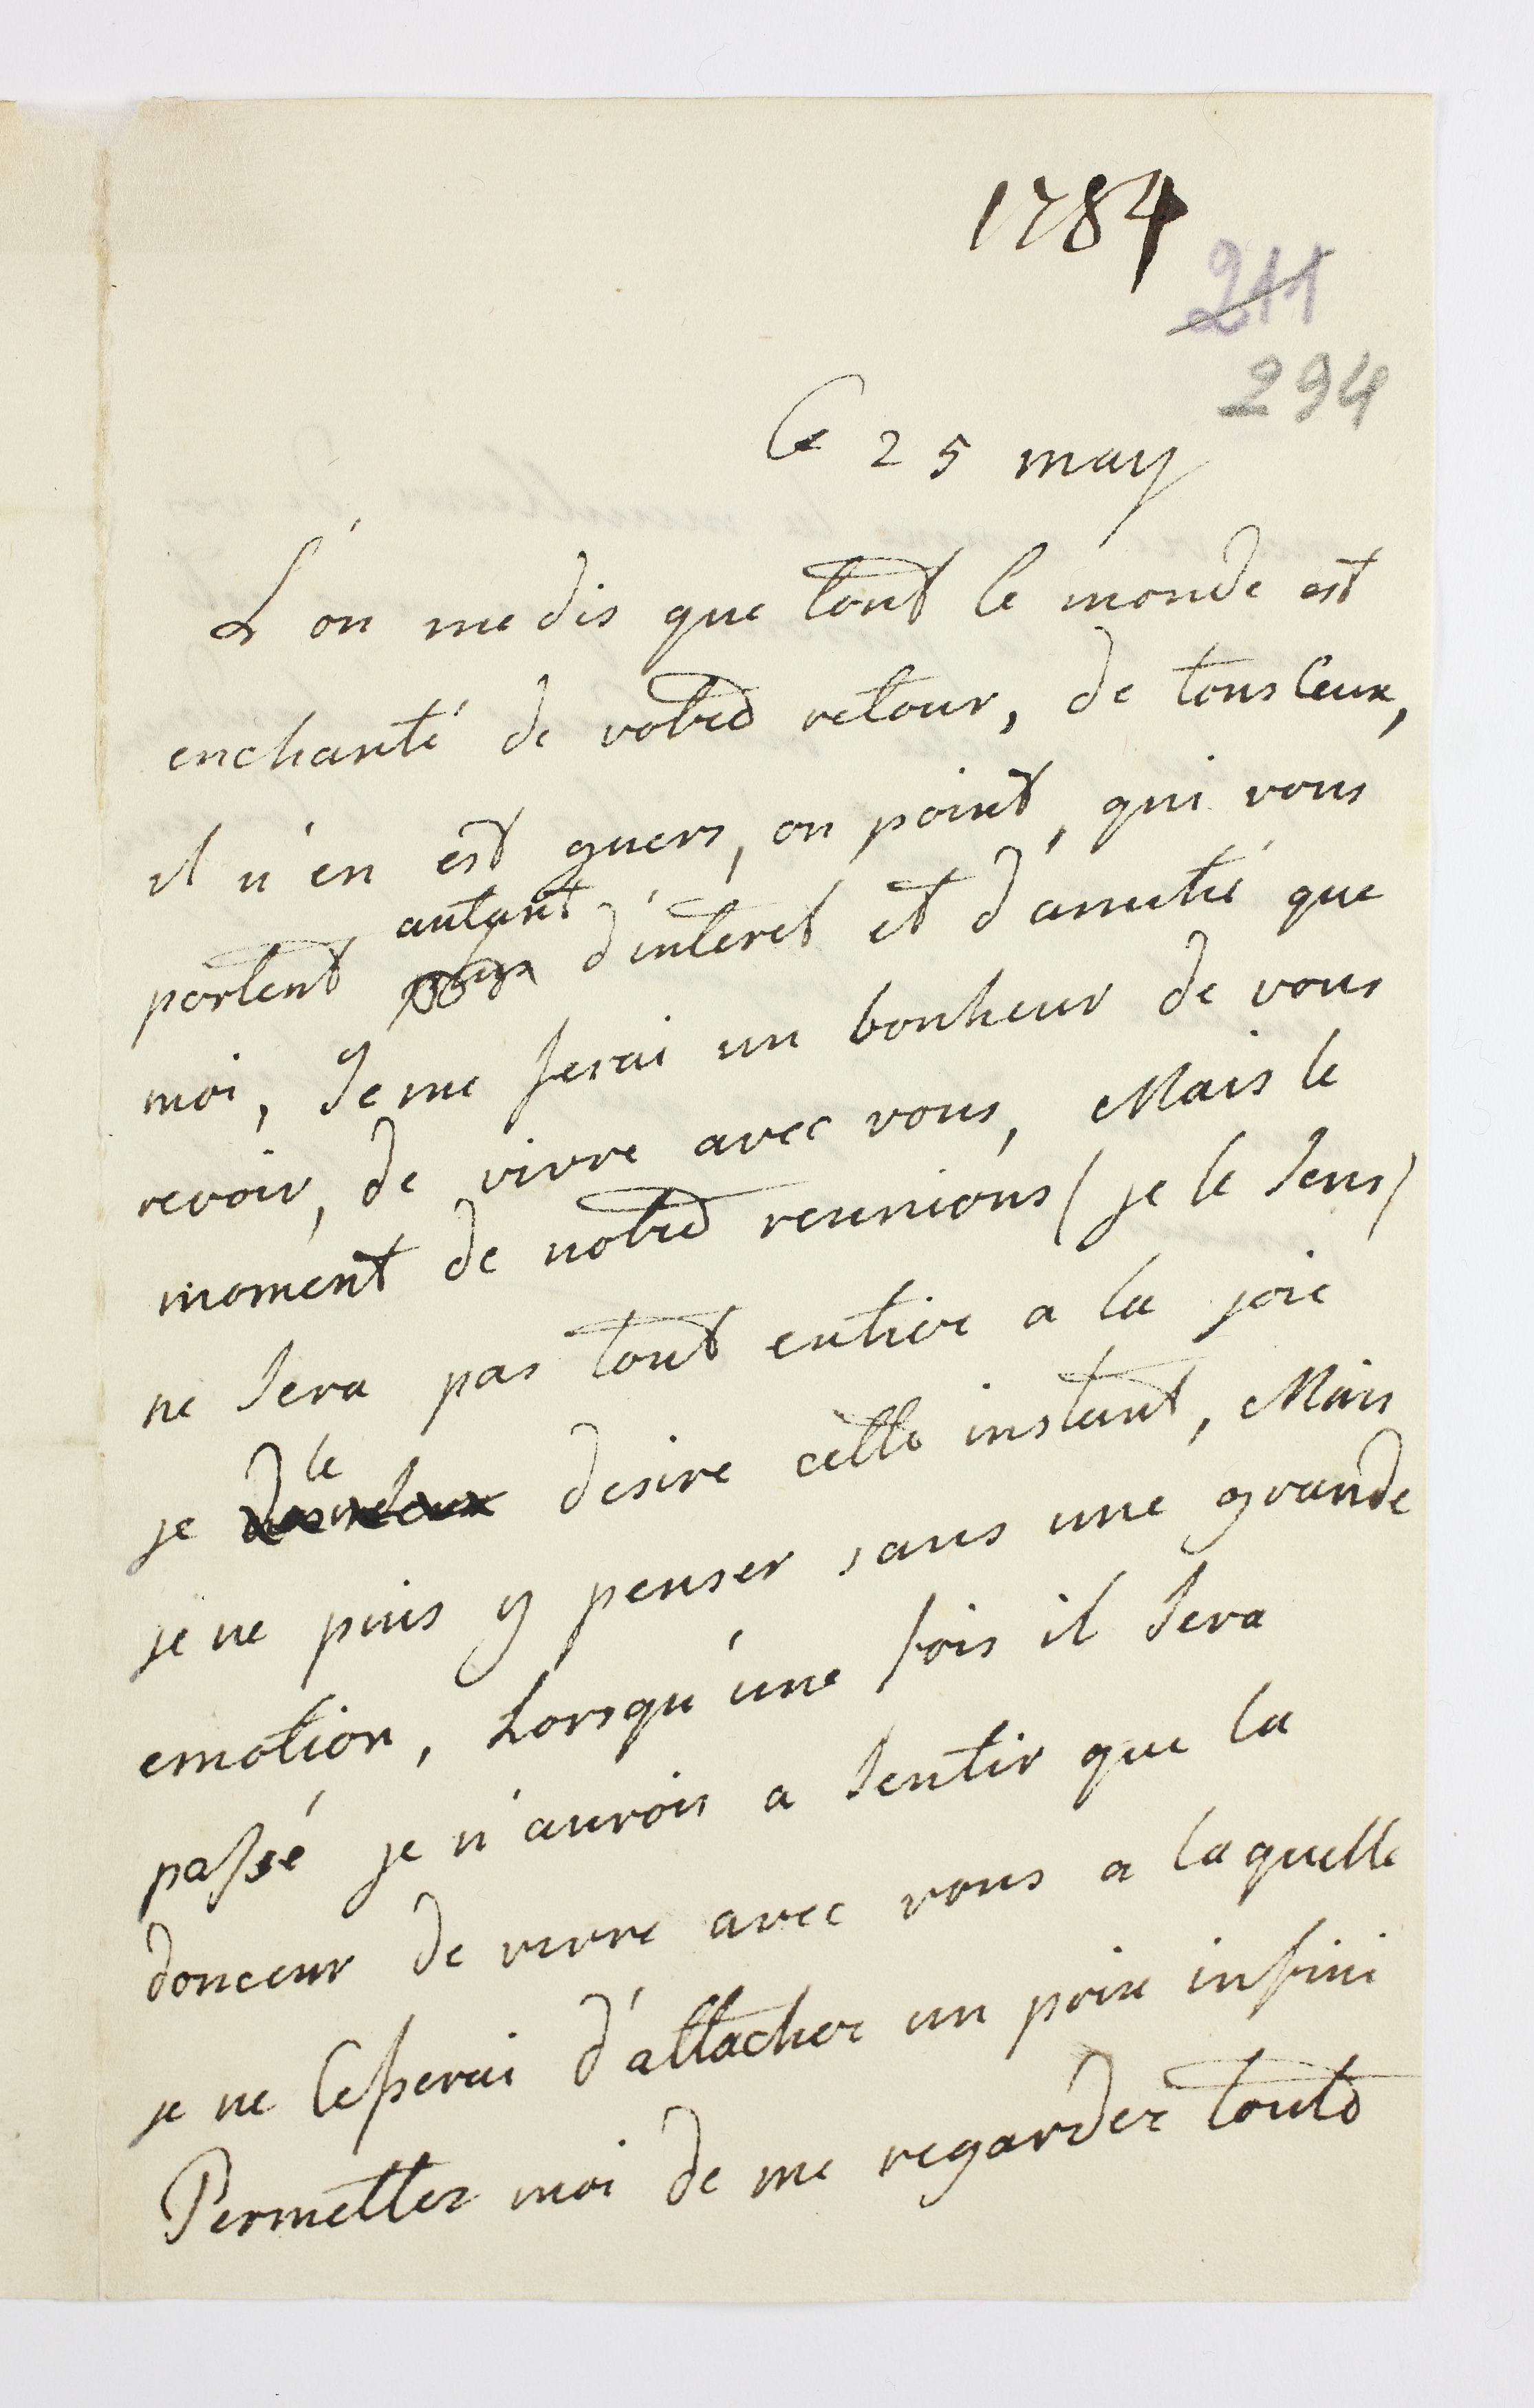 1784
211
294
Ce 25 may
L'on me dis que tout le monde est
enchanté de votre retour, de tous ceux,
il n'en est guers, ou point, qui vous
autant
portent plus d'interet et d'amitié que
moi, Je me ferai un bonheur de vous
revoir, de vivre avec vous, Mais le
moment de notre reunions (je le sens)
ne sera pas tout entier a la joie
le
je desire cette instant, Mais
je ne puis y penser sans une grande
emotion, Lorsqu'une fois il sera
passé je n'aurois a sentir que la
douceur de vivre avec vous a laquelle
je ne cesserai d'attacher un prix infini
Permettez moi de me regarder toute